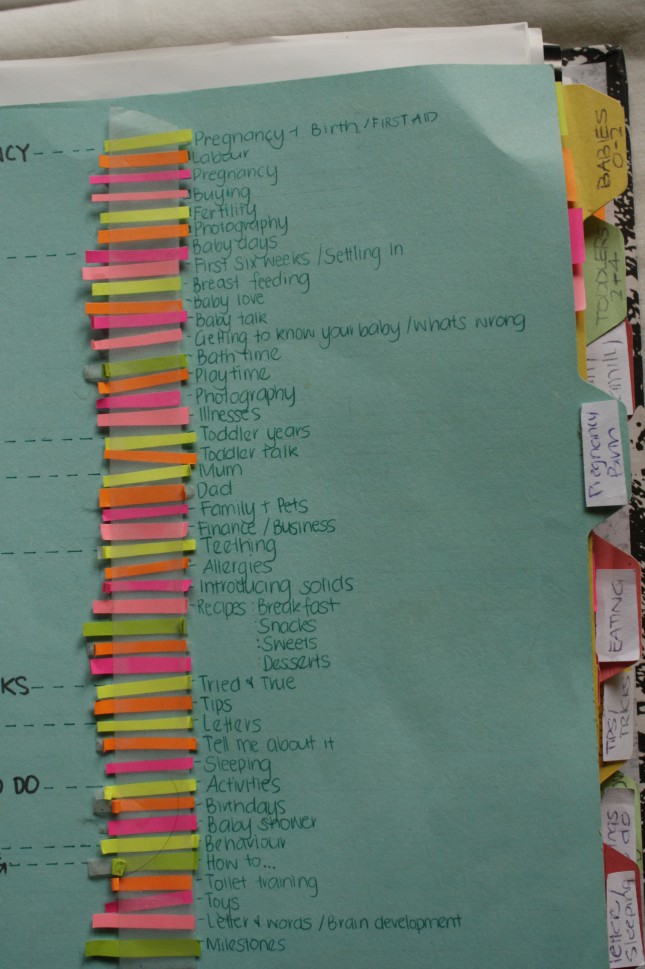 Pregnancy + Birth / FIRST AID
Labour
Pregnancy
Buying
Fertility
Photography
Baby days
First Six weeks / Settling In
Breast feeding
Baby love
Baby talk
Getting to know your baby / whats wrong
Bath time
Playtime
Photography
Illnesses
Toddler years
Toddler talk
Mum
Dad
Family + Pets
Finance / Business
Teething
Allergies
Introducing solids
Recipes : Breakfast
: Snacks
: Sweets
: Desserts
Tried & True
Tips
Letters
Tell me about it
Sleeping
Activities
Birthdays
Baby shower
Behaviour
How to...
Toilet training
Toys
Letter & words / Brain development
Milestones
NCY
KS
DO
BABIES
0-2
TODDLER
2+4
Pregnancy
EATING
TIPS/
TRICKS
do
Sleeping